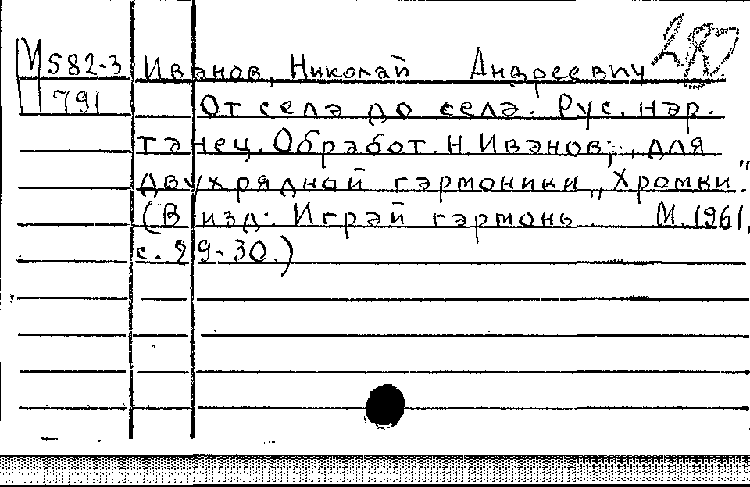 М582-3 Иванов, Николай Андреевич
791 От села до села. Рус. нар.
танец. Обработ. Н. Иванов, для
двухрядной гармоники „Хромки".
(В изд: Играй гармонь. М. 1961,
с. 29-30.)